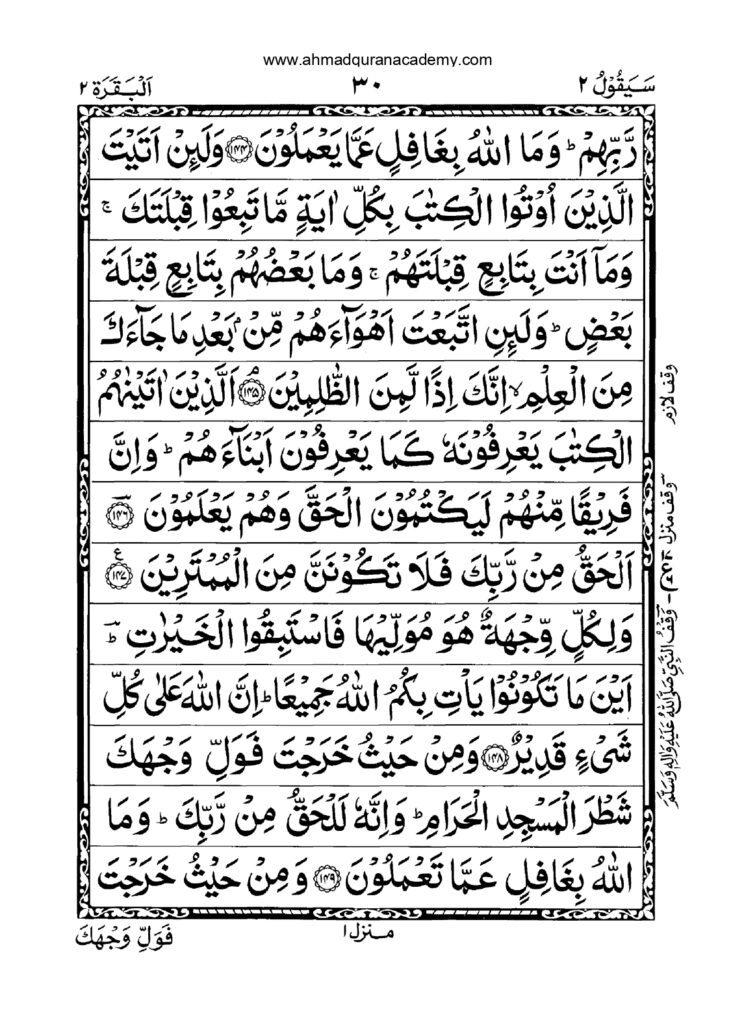 www.ahmadquranacademy.com
سَيَقُوْلُ ٢
٣٠
اَلْبَقَرَة ٢
رَّبِّهِمْ ؕ وَمَا اللّٰهُ بِغَافِلٍ عَمَّا يَعْمَلُوْنَ ﴿١٤٤﴾ وَلَئِنْ اَتَيْتَ
الَّذِيْنَ اُوْتُوا الْكِتٰبَ بِكُلِّ اٰيَةٍ مَّا تَبِعُوْا قِبْلَتَكَ ۚ
وَمَاۤ اَنْتَ بِتَابِعٍ قِبْلَتَهُمْ ۚ وَمَا بَعْضُهُمْ بِتَابِعٍ قِبْلَةَ
بَعْضٍ ؕ وَلَئِنِ اتَّبَعْتَ اَهْوَآءَهُمْ مِّنْۢ بَعْدِ مَا جَآءَكَ
مِنَ الْعِلْمِ ۙ اِنَّكَ اِذًا لَّمِنَ الظّٰلِمِيْنَ ﴿١٤٥﴾ۘ اَلَّذِيْنَ اٰتَيْنٰهُمُ
الْكِتٰبَ يَعْرِفُوْنَهٗ كَمَا يَعْرِفُوْنَ اَبْنَآءَهُمْ ؕ وَاِنَّ
فَرِيْقًا مِّنْهُمْ لَيَكْتُمُوْنَ الْحَقَّ وَهُمْ يَعْلَمُوْنَ ﴿١٤٦﴾
اَلْحَقُّ مِنْ رَّبِّكَ فَلَا تَكُوْنَنَّ مِنَ الْمُمْتَرِيْنَ ﴿١٤٧﴾ ع
وَلِكُلٍّ وِّجْهَةٌ هُوَ مُوَلِّيْهَا فَاسْتَبِقُوا الْخَيْرٰتِ ؕ
اَيْنَ مَا تَكُوْنُوْا يَاْتِ بِكُمُ اللّٰهُ جَمِيْعًا ؕ اِنَّ اللّٰهَ عَلٰى كُلِّ
شَىْءٍ قَدِيْرٌ ﴿١٤٨﴾ وَمِنْ حَيْثُ خَرَجْتَ فَوَلِّ وَجْهَكَ
شَطْرَ الْمَسْجِدِ الْحَرَامِ ؕ وَاِنَّهٗ لَلْحَقُّ مِنْ رَّبِّكَ ؕ وَمَا
اللّٰهُ بِغَافِلٍ عَمَّا تَعْمَلُوْنَ ﴿١٤٩﴾ وَمِنْ حَيْثُ خَرَجْتَ
وقف لازم
وقف منزل
وَقْفُ النَّبِيِّ صَلَّى اللّٰهُ عَلَيْهِ وَاٰلِهٖ وَسَلَّمَ
منزل ١
فَوَلِّ وَجْهَكَ